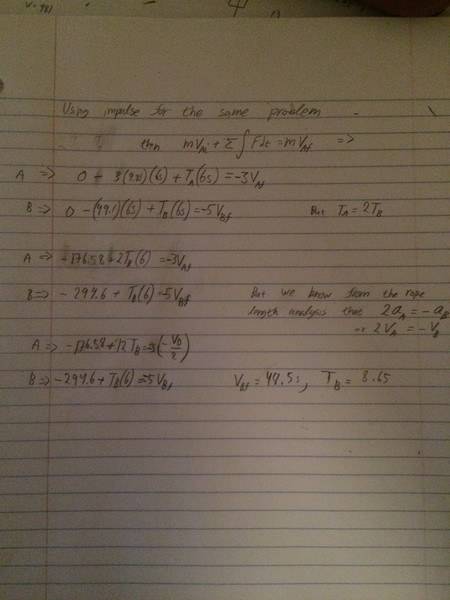 Using impulse for the same problem -
thn mVAi + Σ∫Fdt = mVAf =>
A => 0 - 3(9.81)(6s) + TA(6s) = -3VAf
B => 0 - (49.1)(6s) + TB(6s) = -5VBf But TA = 2TB
A => -176.58 + 2TB(6) = -3VAf
B => -294.6 + TB(6) = -5VBf But we know from the rope
length analysis that 2aA = -aB
or 2VA = -VB
A => -176.58 + 12TB = -3(-VB/2)
B => -294.6 + TB(6) = -5VBf VBf = 47.5; TB = 8.65